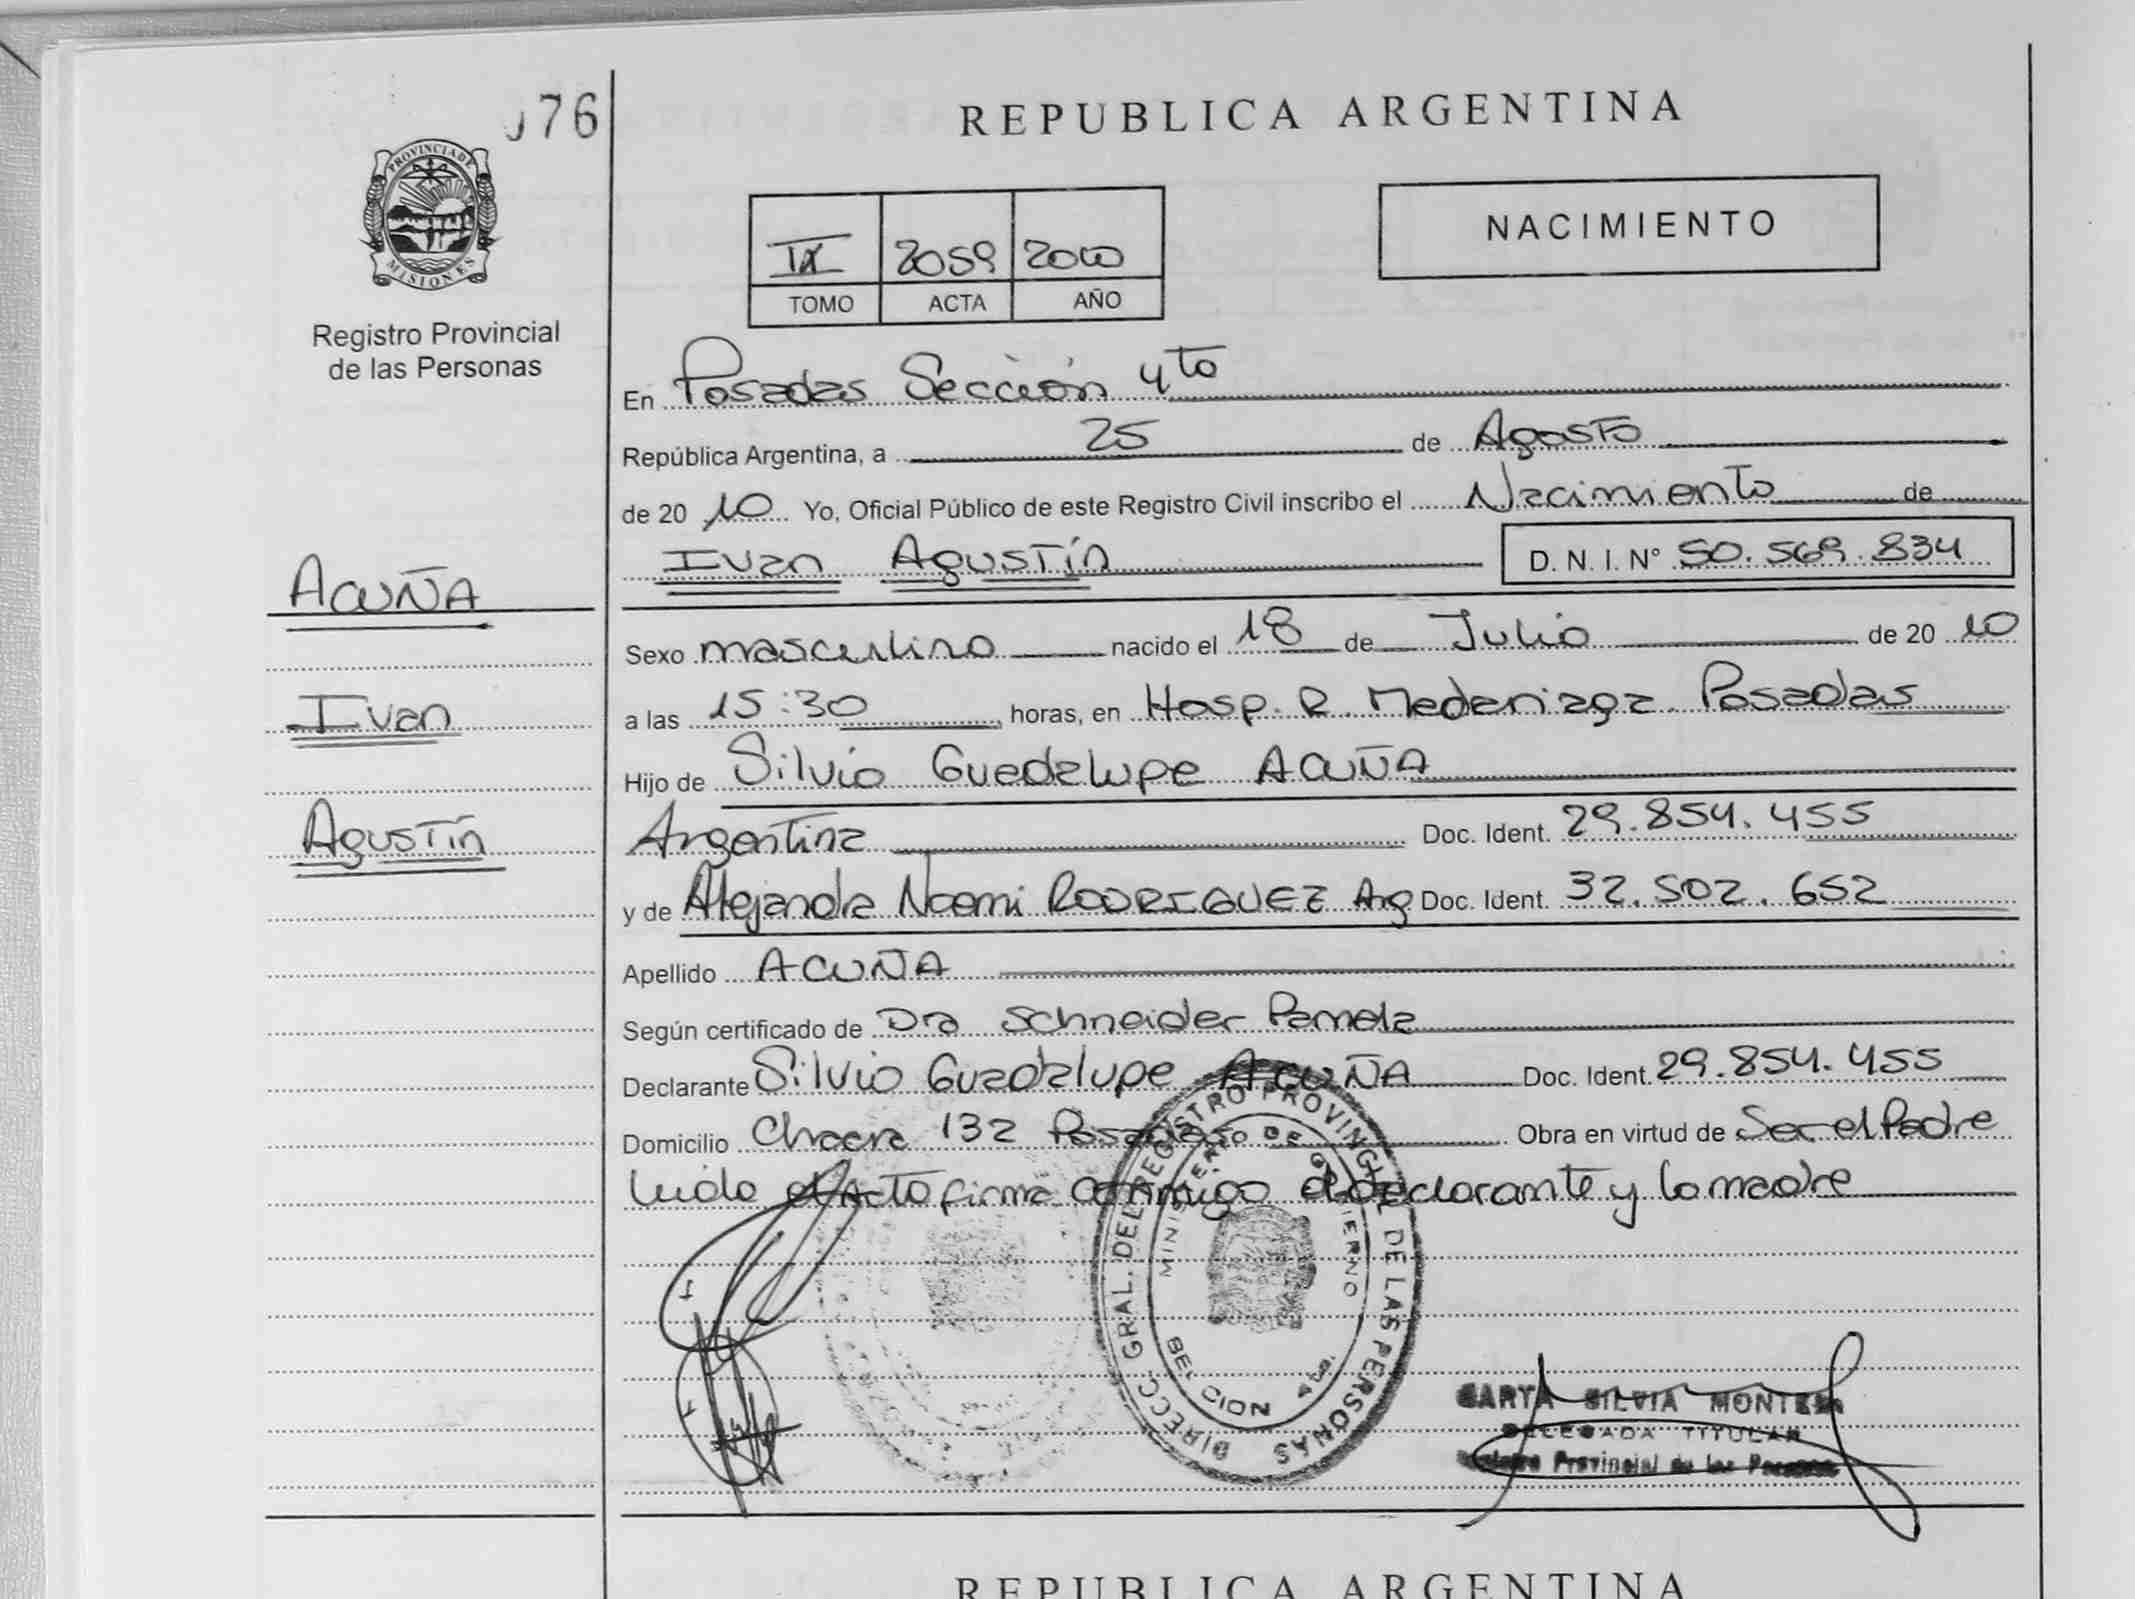 076
PROVINCIA DE
MISIONES
Registro Provincial
de las Personas
REPUBLICA ARGENTINA
IX 2059 2010
TOMO ACTA AÑO
NACIMIENTO
En Posadas Sección 4to
República Argentina, a 25 de Agosto
de 20 10 Yo, Oficial Público de este Registro Civil inscribo el Nacimiento de
Ivan Agustín D. N. I. N° 50.569.834
ACUÑA
Ivan
Agustín
Sexo masculino nacido el 18 de Julio de 20 10
a las 15:30 horas, en Hosp. R. Madariaga Posadas
Hijo de Silvio Guadalupe ACUÑA
Argentina Doc. Ident. 29.854.455
y de Alejandra Noemi RODRIGUEZ Arg Doc. Ident. 32.502.652
Apellido ACUÑA
Según certificado de Dra Schneider Pamela
Declarante Silvio Guadalupe ACUÑA Doc. Ident. 29.854.455
Domicilio Chacra 132 Posadas Obra en virtud de Ser el Padre
Leido el Acto firma conmigo el declarante y la madre
DIRECC. GRAL. DEL REGISTRO PROVINCIAL DE LAS PERSONAS
MINISTERIO DE GOBIERNO
SILVIA
DELEGADA TITULAR
Provincial de las Personas
REPUBLICA ARGENTINA